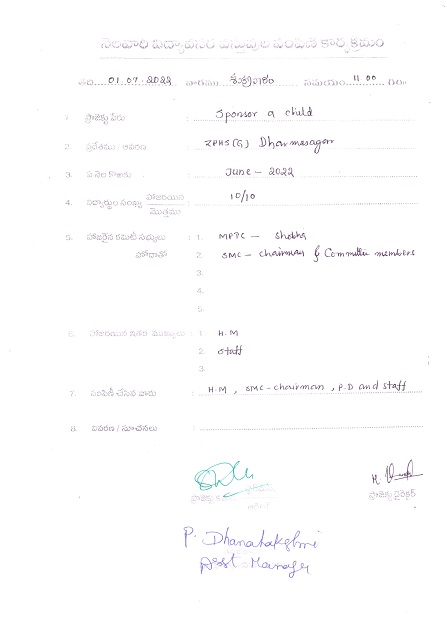 నెలవారి విద్యావసర వస్తువుల పంపిణి కార్యక్రమం
తేది....01.07.2022 వారము శుక్రవారం సమయం 11.00 గం.
1. ప్రాజెక్టు పేరు : Sponsor a child
2. ప్రదేశము : ZPHS(G) Dharmasagar
3. ఏ నెల కొఱకు : June - 2022
4. విద్యార్థుల సంఖ్య హాజరయిన / మొత్తము : 10/10
5. హాజరైన కమిటీ సభ్యులు : 1. MPPC - Shobha
హోదాతో 2. SMC - chairman & Committee members
3.
4.
5.
6. హాజరయిన ఇతర ముఖ్యులు : 1. H.M
2. Staff
3.
7. పంపిణీ చేసిన వారు : H.M, SMC-chairman, P.D and staff
8. వివరణ / సూచనలు :
ప్రాజెక్టు ప్రాజెక్ట్ డైరెక్టర్
P. Dhanalakshmi
Asst Manager